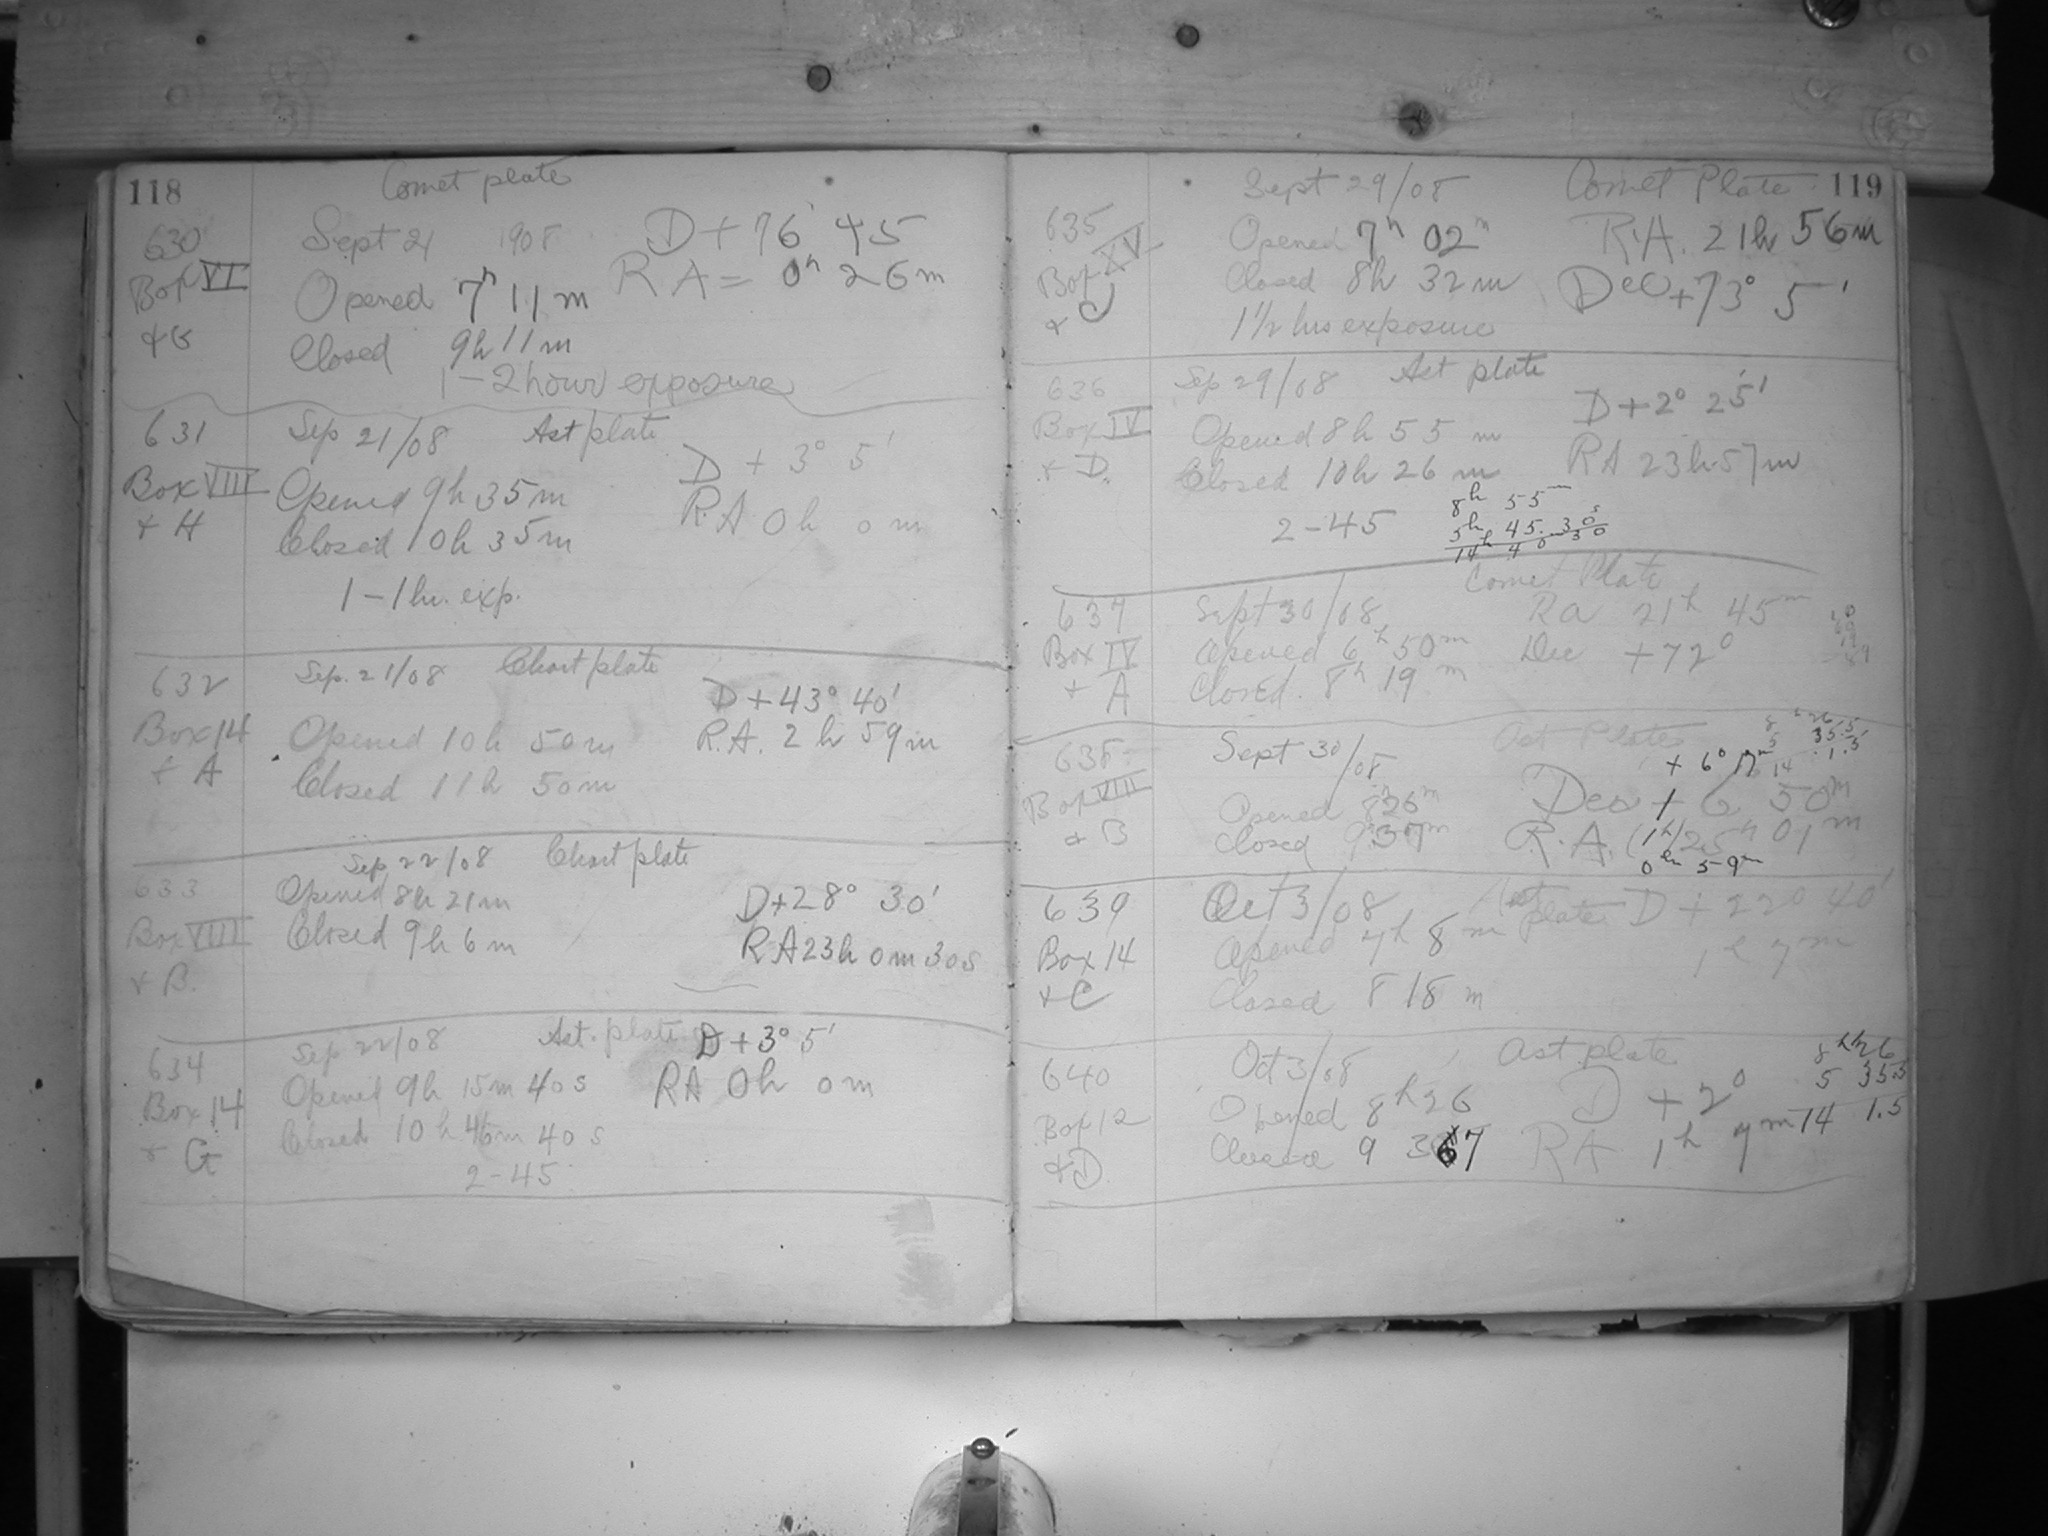 118
Comet plate
630 Sept 21 1908 D + 76 45
Box VI Opened 7h 11m RA = 0h 26m
+ G Closed 9h 11m
1 – 2 hour exposure
631 Sep 21/08 Ast plate D + 3° 5'
Box VIII Opened 9h 35m R.A. 0h 0m
+ H Closed 10h 35m
1 – 1 hr. exp.
632 Sep. 21/08 Chart plate D + 43° 40'
Box 14 Opened 10h 50m R.A. 2h 59m
+ A Closed 11h 50m
Sep 22/08 Chart plate
633 Opened 8h 21m D + 28° 30'
Box VIII Closed 9h 6m RA 23h 0m 30s
+ B.
634 Sep 22/08 Ast. plate D + 3° 5'
Box 14 Opened 9h 15m 40s RA 0h 0m
+ G Closed 10h 46m 40s
2 - 45
119
Sept 29/08 Comet Plate
635 Opened 7h 02m R.A. 21h 56m
Box XV Closed 8h 32m Dec + 73° 5'
+ C 1½ hrs exposure
636 Sep 29/08 Ast plate D + 2° 25'
Box IV Opened 8h 55m RA 23h 57m
+ D. Closed 10h 26m
2 - 45 8h 55m
5h 45m 30s
14h 40 30
Comet Plate
637 Sept 30/08 Ra 21h 45m
Box IV Opened 6h 50m Dec + 72°
+ A Closed. 8h 19m
638 Sept 30/08 Ast Plate
8h 26
5 35.5
14 1.5
+ 6°
Box VIII Opened 8h 26m Dec + 6 50m
+ B Closed 9 37m R.A. (1h) 01m
0h 59m
639 Oct 3/08 Ast plate D + 22° 40'
Box 14 Opened 7h 8m 1h 7m
+ C Closed 8 18m
640 Oct 3/08 Ast. plate 8h 26
Box 12 Opened 8h 26 D + 2° 5 35.5
+ D. Closed 9 37 RA 1h 7m 14 1.5